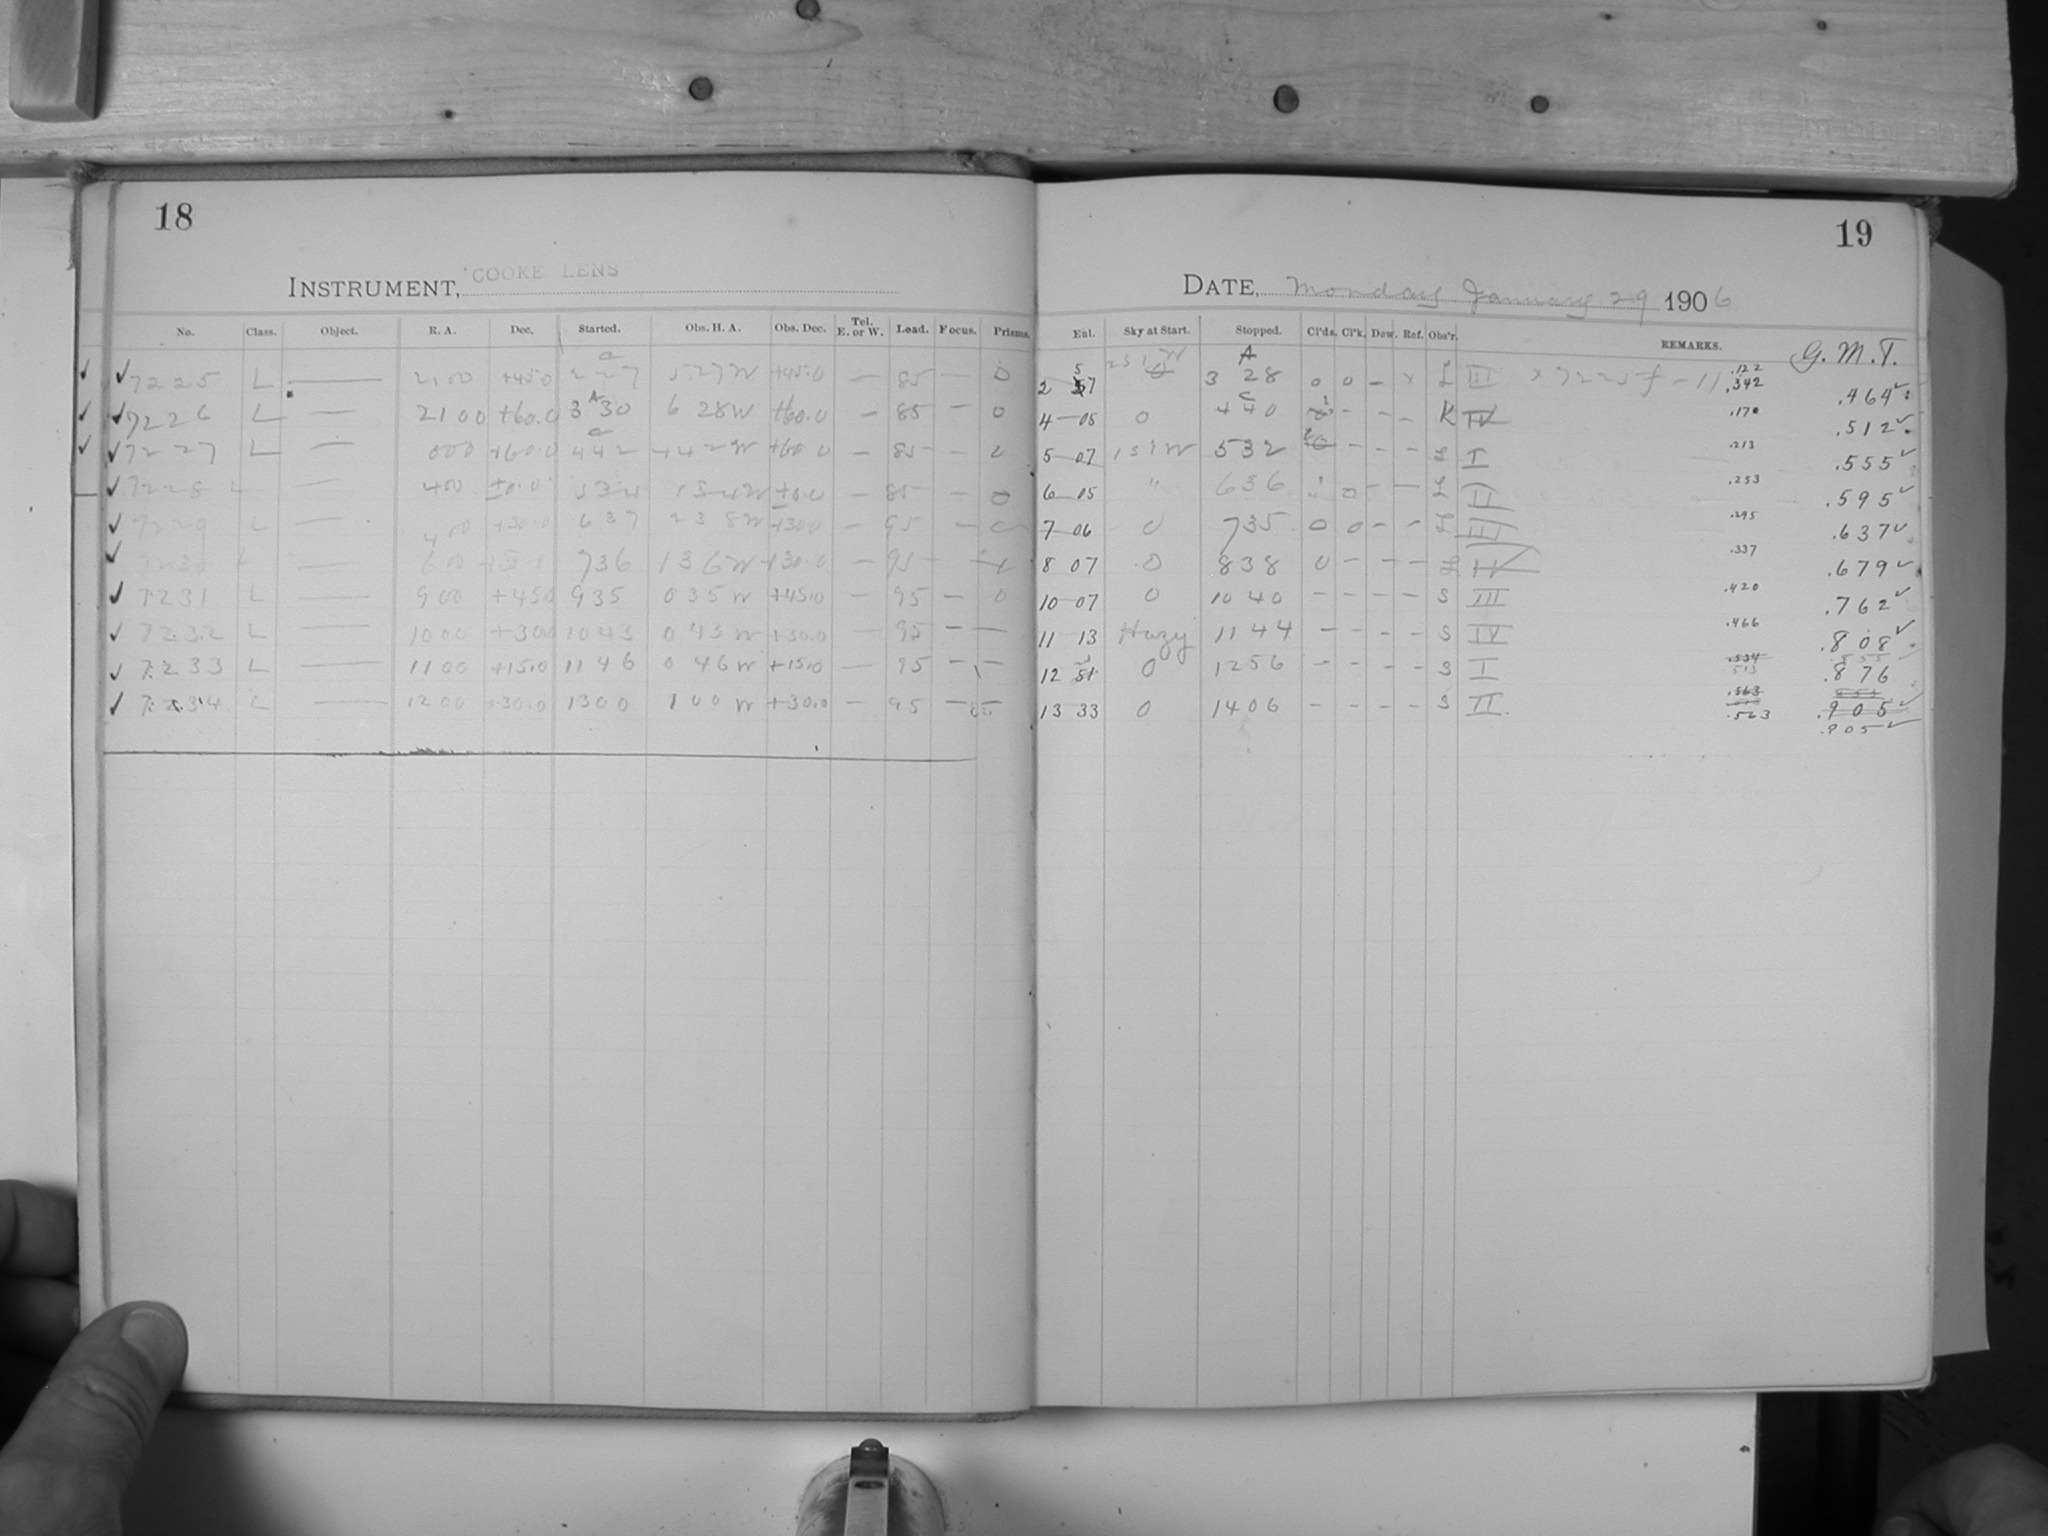 18
INSTRUMENT, COOKE LENS
No. Class. Object. R. A. Dec. Started. Obs. H. A. Obs. Dec. Tel. E. or W. Lead. Focus. Prisms.
✓ ✓ 7225 L — 21 00 +45.0 2 27 5 27 W +45.0 — 85 — 0
✓ ✓ 7226 L — 21 00 +60.0 3 30 6 28 W +60.0 — 85 — 0
✓ ✓ 7227 L — 0 00 +60.0 4 42 4 42 W +60.0 — 85 — 0
✓ 7228 L — 4 00 ±0.0 5 34 1 34 W ±0.0 — 85 — 0
✓ 7229 L — 4 00 +30.0 6 37 2 38 W +30.0 — 95 — 0
✓ 7230 L — 6 00 7 36 1 36 W +30.0 — 95 —
✓ 7231 L — 9 00 +45.0 9 35 0 35 W +45.0 — 95 — 0
✓ 7232 L — 10 00 +30.0 10 43 0 43 W +30.0 — 95 — —
✓ 7233 L — 11 00 +15.0 11 46 0 46 W +15.0 — 95 — —
✓ 7234 L — 12 00 +30.0 13 00 1 00 W +30.0 — 95 — —
19
DATE, Monday January 29 1906
Ent. Sky at Start. Stopped. Cl'ds. Cl'k. Dew. Ref. Obs'r. REMARKS. G. M. T.
2 57 0 3 28 0 0 — × L III × 7225 f - 11 .122 .342 .464 ✓
4 05 0 4 40 — — — K IV .170 .512 ✓
5 07 1 5 1 W 5 32 — — — L I .213 .555 ✓
6 05 " 6 36 — L II .253 .595 ✓
7 06 0 7 35 0 0 — — L III .295 .637 ✓
8 07 0 8 38 0 — — — L IV .337 .679 ✓
10 07 0 10 40 — — — — S III .420 .762 ✓
11 13 Hazy 11 44 — — — — S IV .466 .808 ✓
12 51 0 12 56 — — — — S I .534 .876
13 33 0 14 06 — — — — S II. .563 .905 ✓
.563 .905 ✓